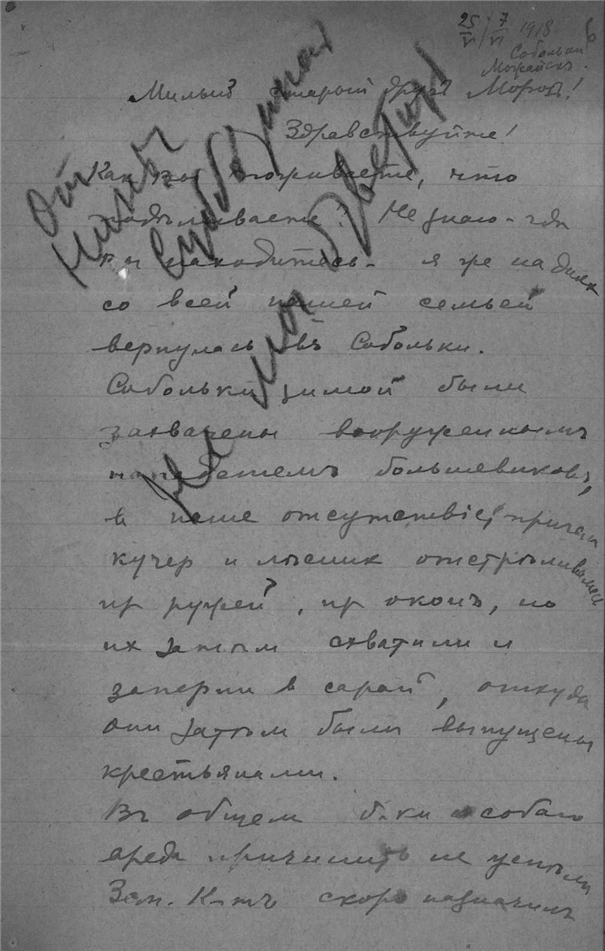 25/VI / 7/VI 1918
Собольки
Можайск.
Милый старый друг Мороз!
Здравствуйте!
Как Вы поживаете, что
поделываете? Не знаю - где
Вы находитесь - я же на днях
со всей нашей семьей
вернулась въ Собольки.
Собольки зимой были
захвачены вооруженнымъ
нападетемъ большевиковъ,
в наше отсутствіе, причем
кучер и лесник отстреливались
из ружей, из оконъ, но
их затем схватили и
заперли в сарай, откуда
они затем были выпущены
крестьянами.
Въ общем б-ки особаго
вреда причинить не успели
Зем. К-тъ скоро назначилъ
От
Нины
Субботиной